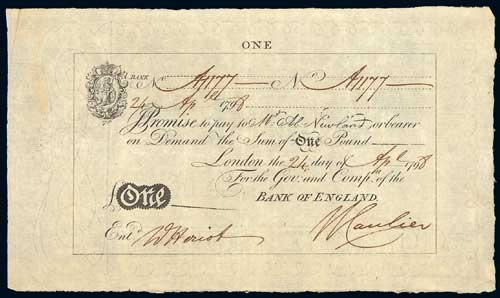 ONE
BANK No. A1177 No. A1177
24 Apl 1798
I Promise to pay to Mr. Ab. Newland, or bearer
on Demand the Sum of One Pound
London the 24 day of Apl. 1798
For the Gov.r and Comp.a of the
BANK OF ENGLAND.
£ One
Ent.d W Heriot